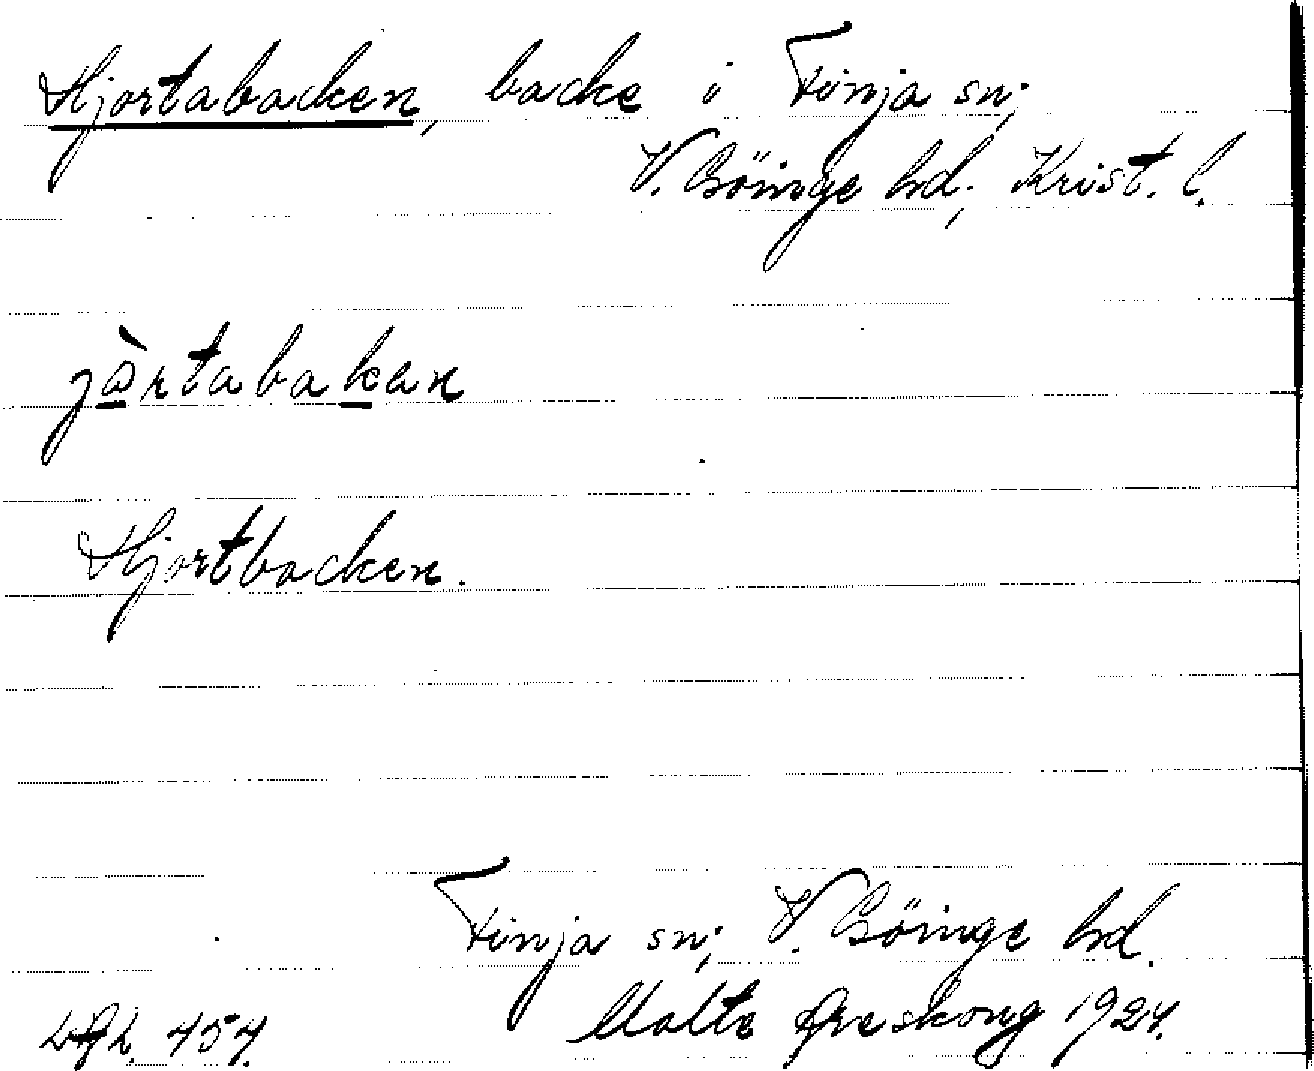 Hjortabacken, backe i Finja sn;
V. Göinge hd; Krist. l.
jòrtabaken
Hjortbacken.
Finja sn; V. Göinge hd.
Malte Areskoug 1924.